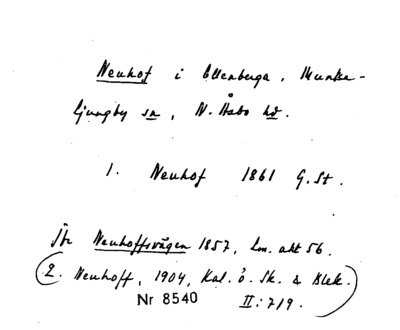 Neuhof i Ellenberga, Munka-
Ljungby sn, N. Åsbo hd.
1. Neuhof 1861 G.St.
Jfr Neuhoffsvägen 1857, Lm. akt 56.
(2. Neuhoff, 1904, Kal. ö. Sk. & Blek.
Nr 8540 II:719.)